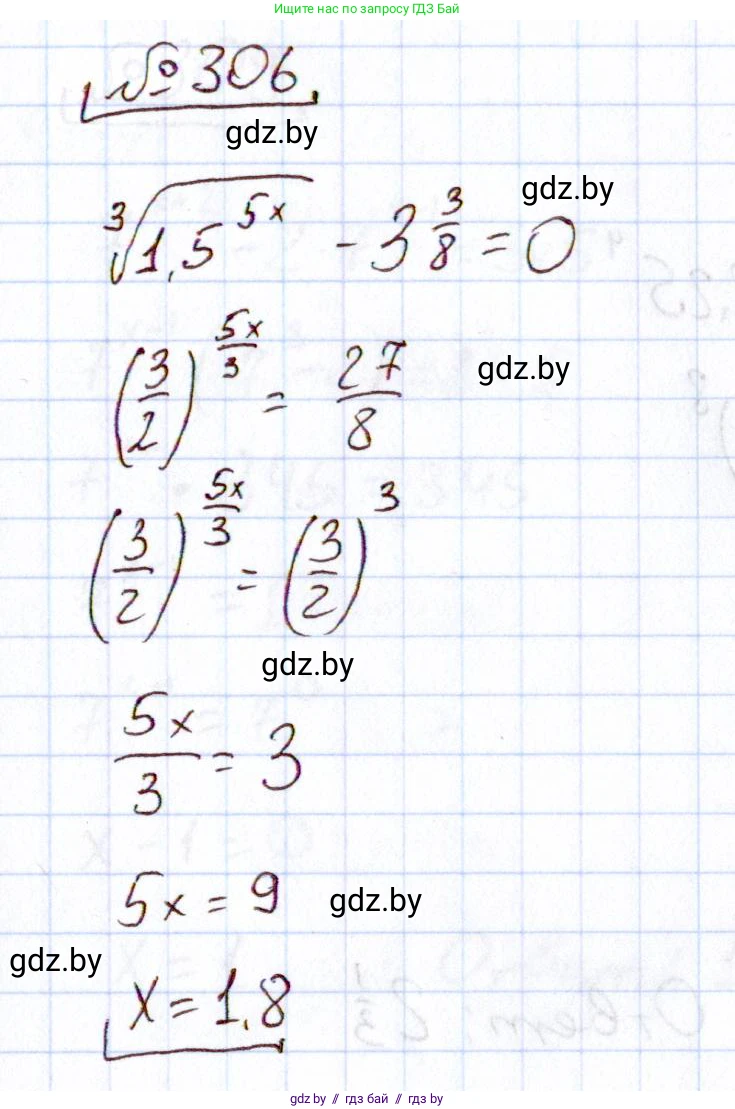 Ищите нас по запросу ГДЗ Бай
№ 306.
gdz.by
gdz.by
∛(1,5^(5x)) - 3 3/8 = 0
(3/2)^(5x/3) = 27/8
gdz.by
(3/2)^(5x/3) = (3/2)^3
gdz.by
5x/3 = 3
5x = 9
gdz.by
gdz.by
x = 1,8
gdz.by // гдз бай // гдз by